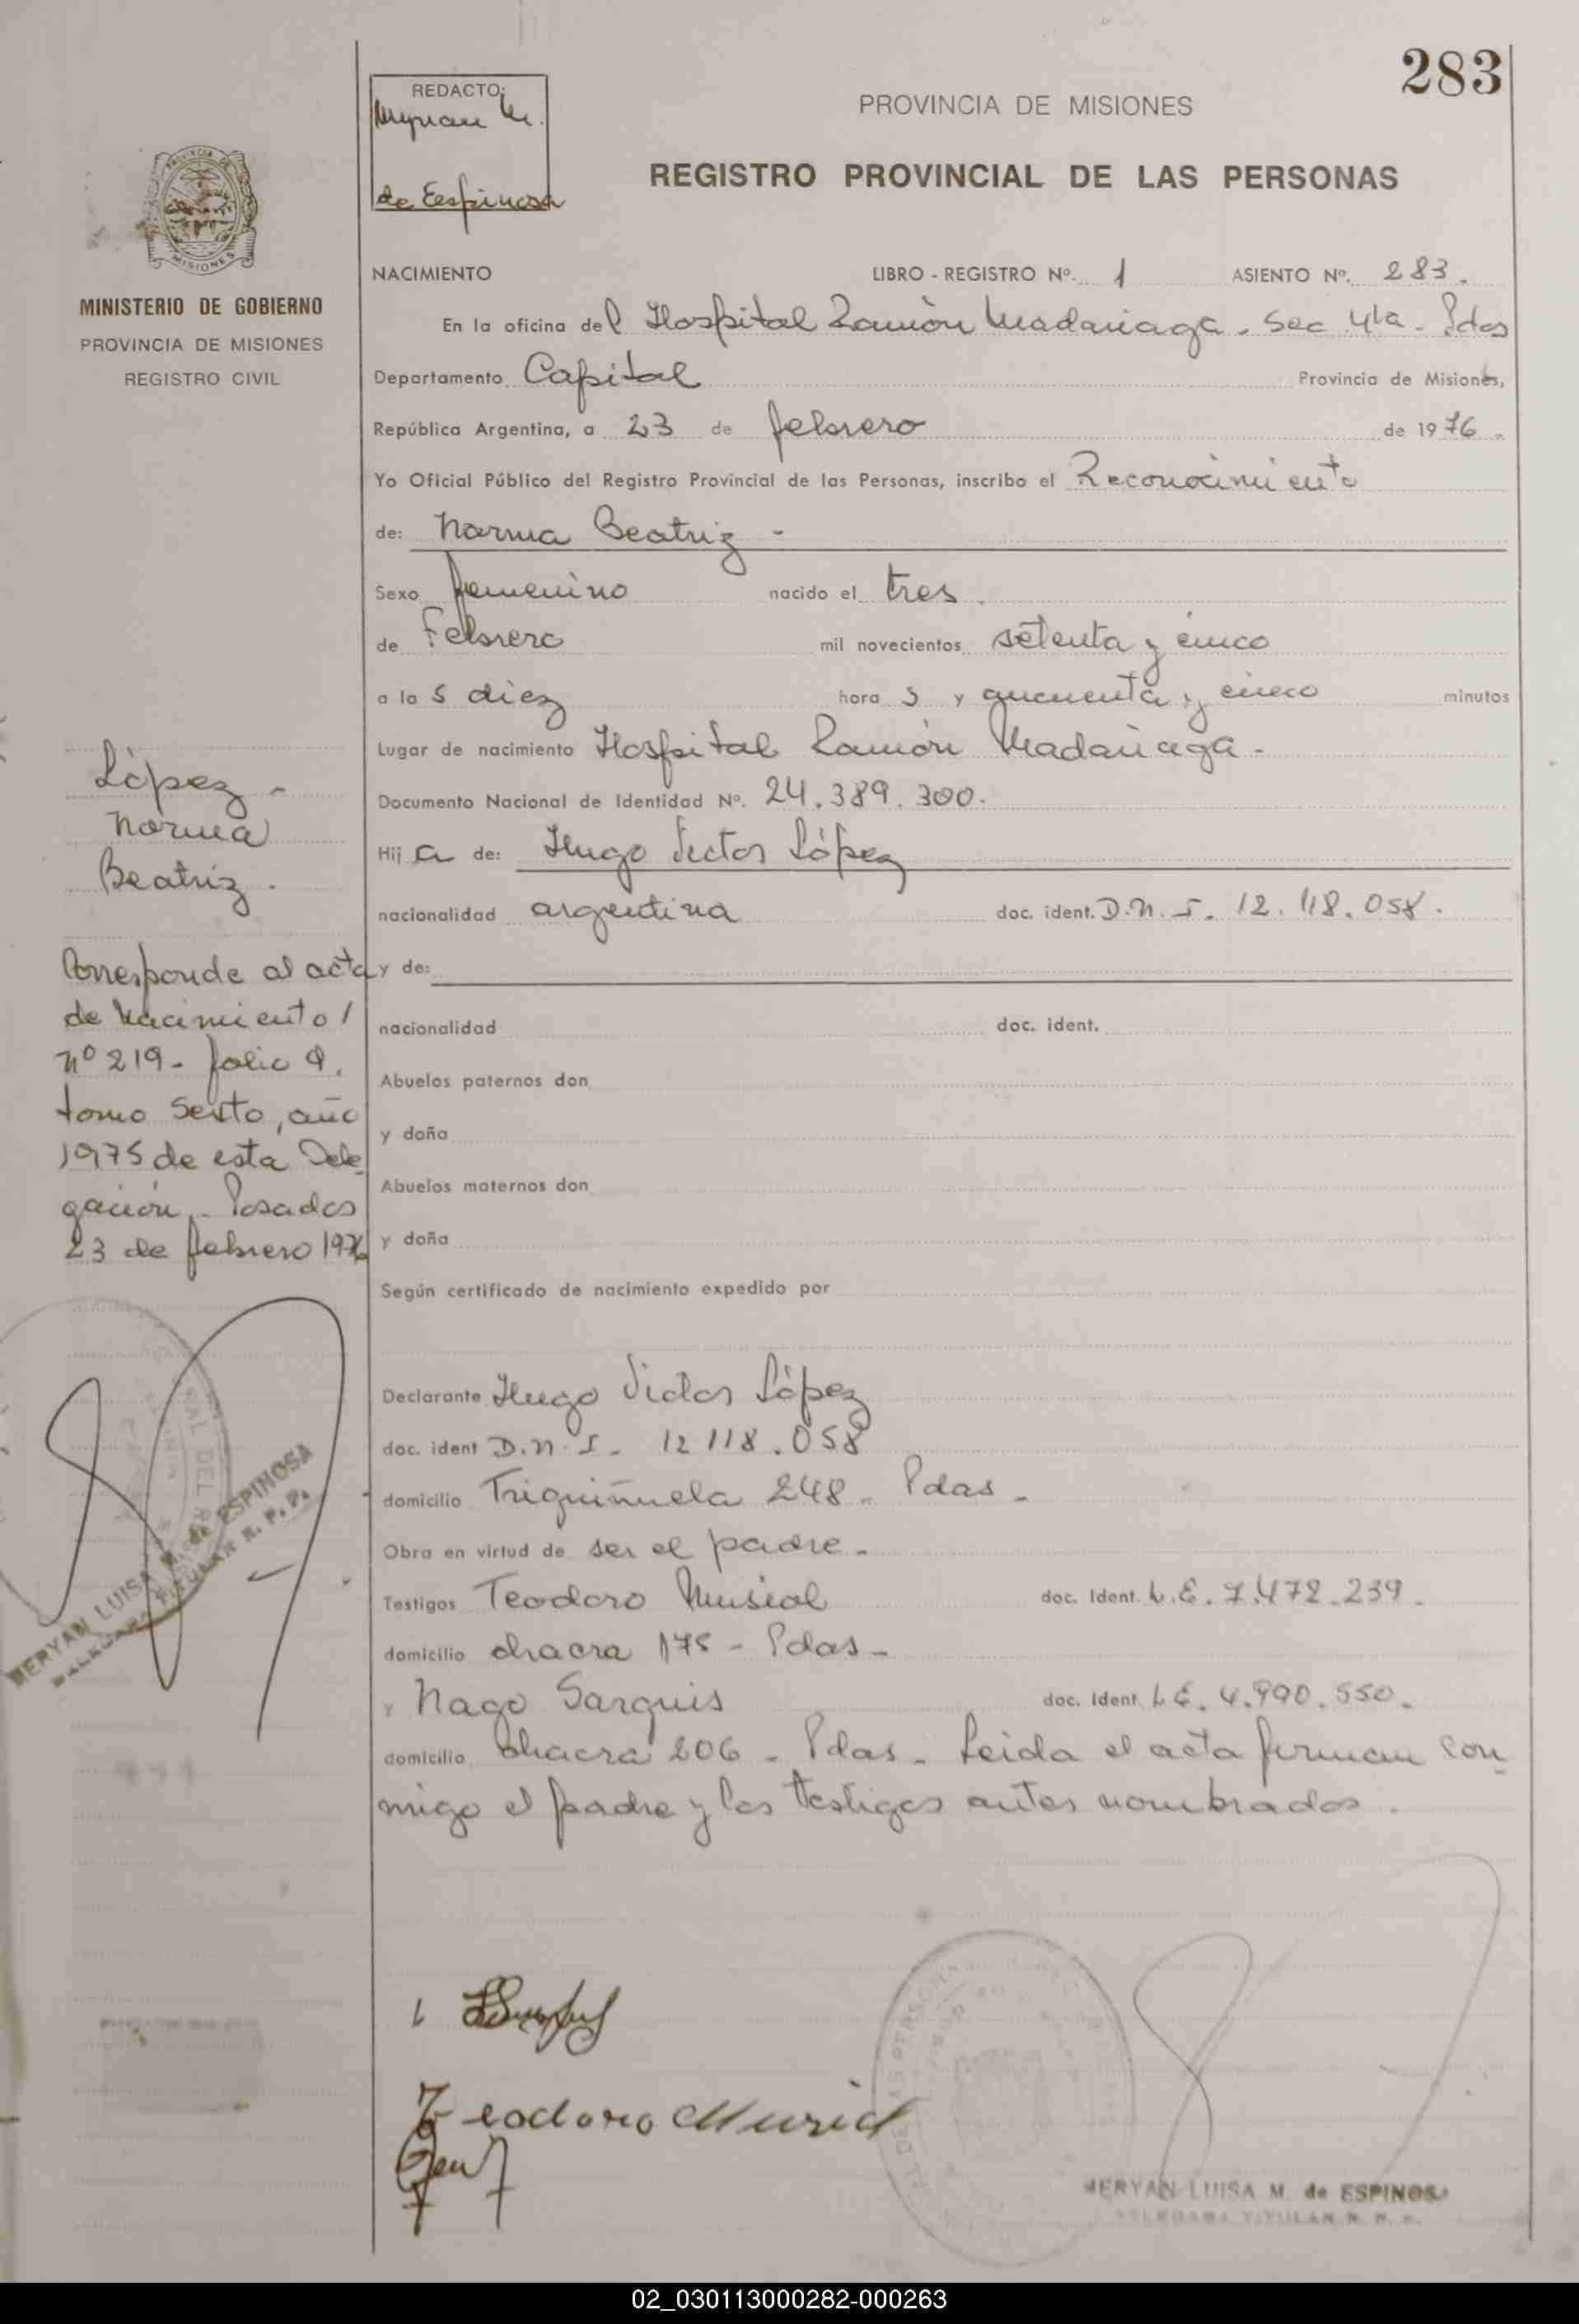 283
REDACTO:
de Espinosa
PROVINCIA DE MISIONES
REGISTRO PROVINCIAL DE LAS PERSONAS
PROVINCIA DE
MISIONES
MINISTERIO DE GOBIERNO
PROVINCIA DE MISIONES
REGISTRO CIVIL
NACIMIENTO LIBRO - REGISTRO Nº. 1 ASIENTO Nº. 283.
En la oficina del Hospital Ramón Madariaga. Sec 4ta. Pdas
Departamento Capital Provincia de Misiones,
República Argentina, a 23 de febrero de 1976.
Yo Oficial Público del Registro Provincial de las Personas, inscribo el Reconocimiento
de: Norma Beatriz -
Sexo femenino nacido el tres.
de Febrero mil novecientos setenta y cinco
a las diez horas y cincuenta y cinco minutos
Lugar de nacimiento Hospital Ramón Madariaga.
Documento Nacional de Identidad Nº. 24.389.300.
Hija de: Hugo Victor López
nacionalidad argentina doc. ident. D.N.I. 12.118.058.
y de:
nacionalidad doc. ident.
Abuelos paternos don
y doña
Abuelos maternos don
y doña
Según certificado de nacimiento expedido por
Declarante Hugo Victor López
doc. ident D.N.I. 12 118.058
domicilio Triguiñuela 248. Pdas.
Obra en virtud de ser el padre.
Testigos Teodoro Musial doc. Ident. L.E. 7.472.239.
domicilio chacra 175 - Pdas -
y Nago Sarquis doc. Ident. L E. 4.990.550.
domicilio chacra 206 - Pdas. Leida el acta firman con
migo el padre y los testigos antes nombrados.
López -
Norma
Beatriz.
Corresponde al acta
de Nacimiento /
nº 219 - folio 9.
tomo Sexto, año
1975 de esta Dele
gación. Posadas
23 de febrero 1976
MERYAN LUISA M. de ESPINOSA
DELEGADA TITULAR R. P. P.
Teodoro Musial
MERYAN LUISA M. de ESPINOSA
DELEGADA TITULAR R. P. P.
02_030113000282-000263